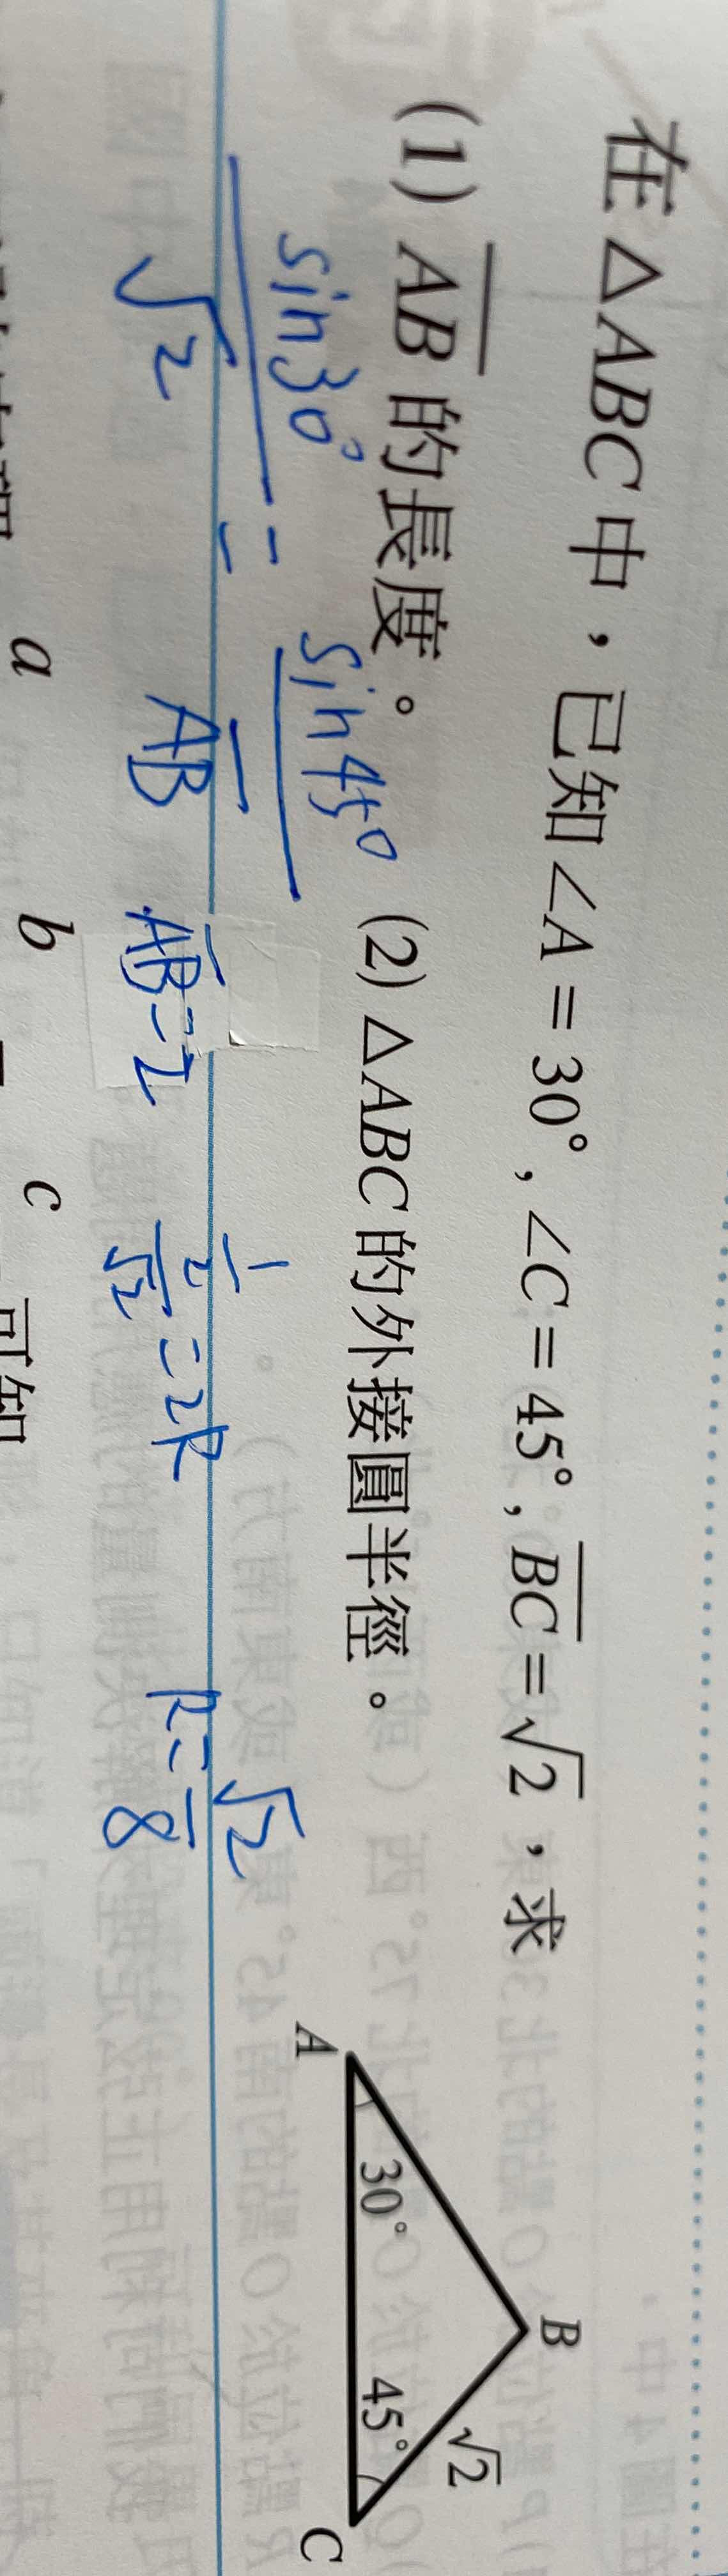 在△ABC中，已知∠A = 30°, ∠C = 45°, BC = √2，求
(1) AB 的長度。 (2) △ABC 的外接圓半徑。
sin30° / √2 = sin45° / AB
AB=2
1/2 / √2 = 2R
R = √2 / 8
A
30°
B
√2
45°
C
a b c
可知